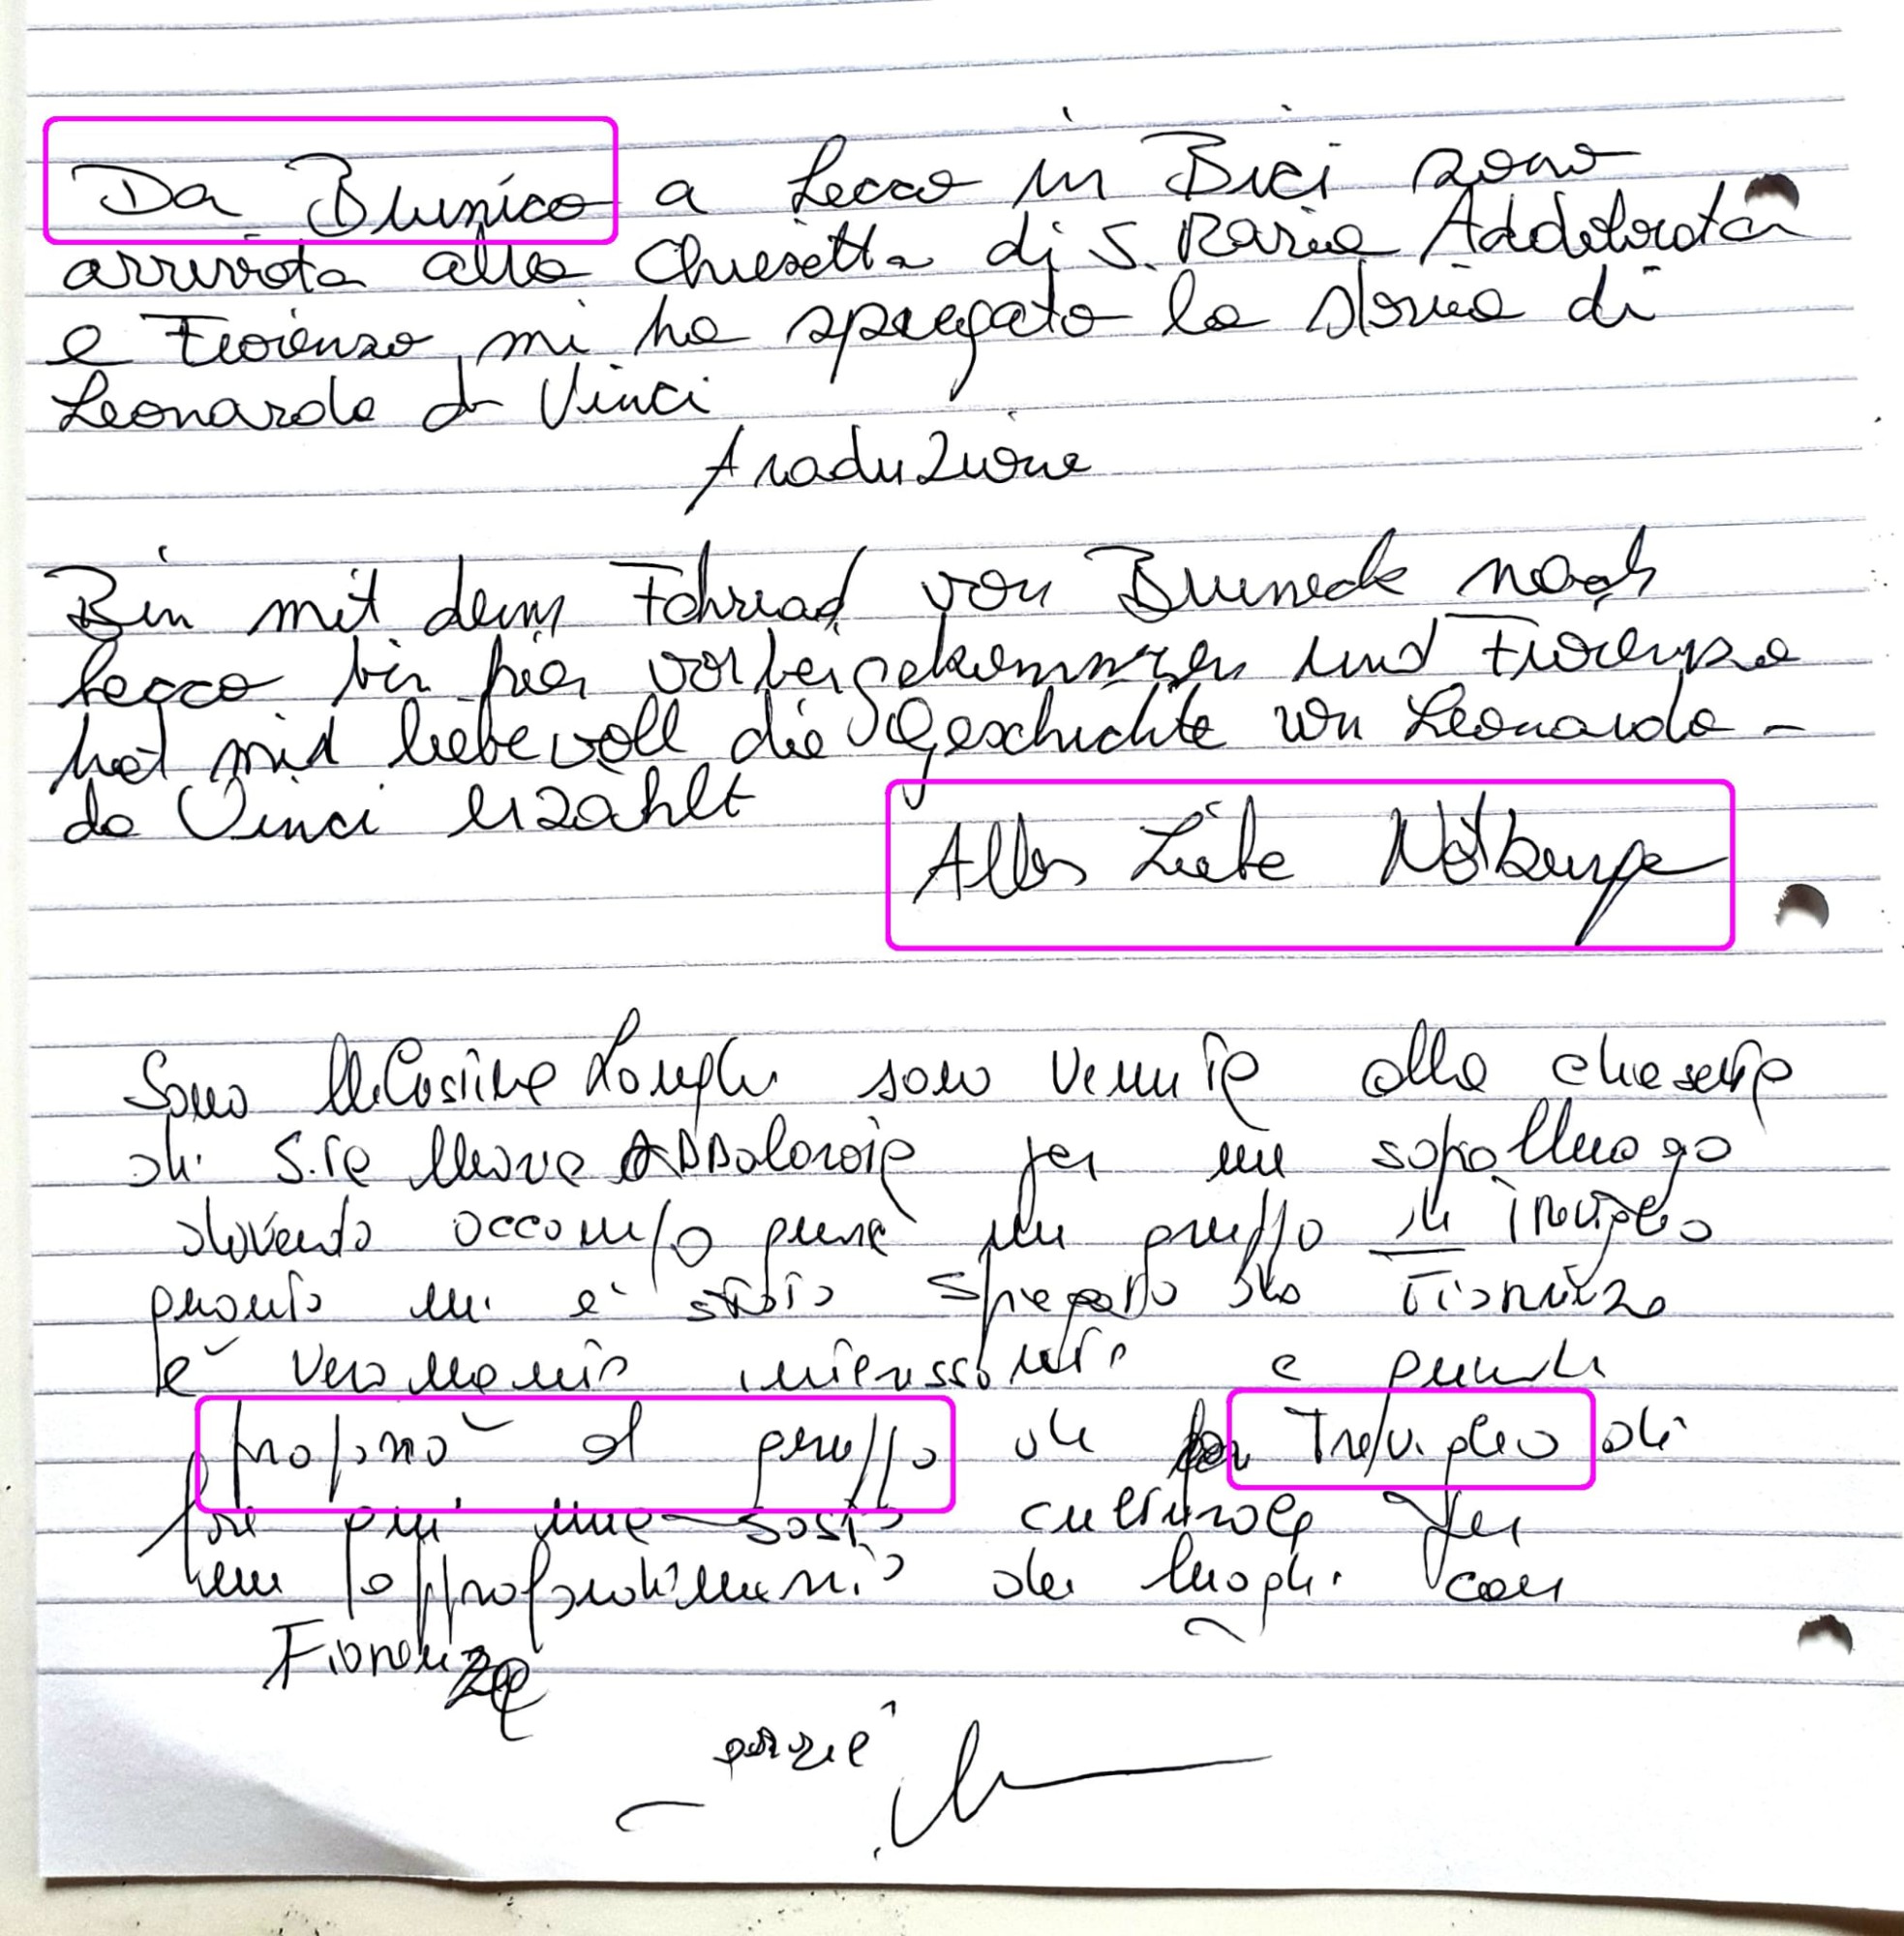 Da Brunico a Lecco in Bici sono
arrivata alla Chiesetta di S. Maria Addolorata
e Fiorenzo mi ha spiegato la storia di
Leonardo da Vinci
traduzione
Bin mit dem Fahrrad von Bruneck nach
Lecco bin hier vorbeigekommen und Fiorenzo
hat mir liebevoll die Geschichte von Leonardo
da Vinci erzählt
Alles Liebe Notburga
Sono M. Cristina Longhi sono venuta alla chiesetta
di S.ta Maria Addolorata per un sopralluogo
dovendo accompagnare un gruppo di Treviglio
quanto mi è stato spiegato da Fiorenzo
è veramente interessante e quindi
proporrò al gruppo di Treviglio di
fare qui una sosta culturale per
un approfondimento dei luoghi con
Fiorenzo
grazie